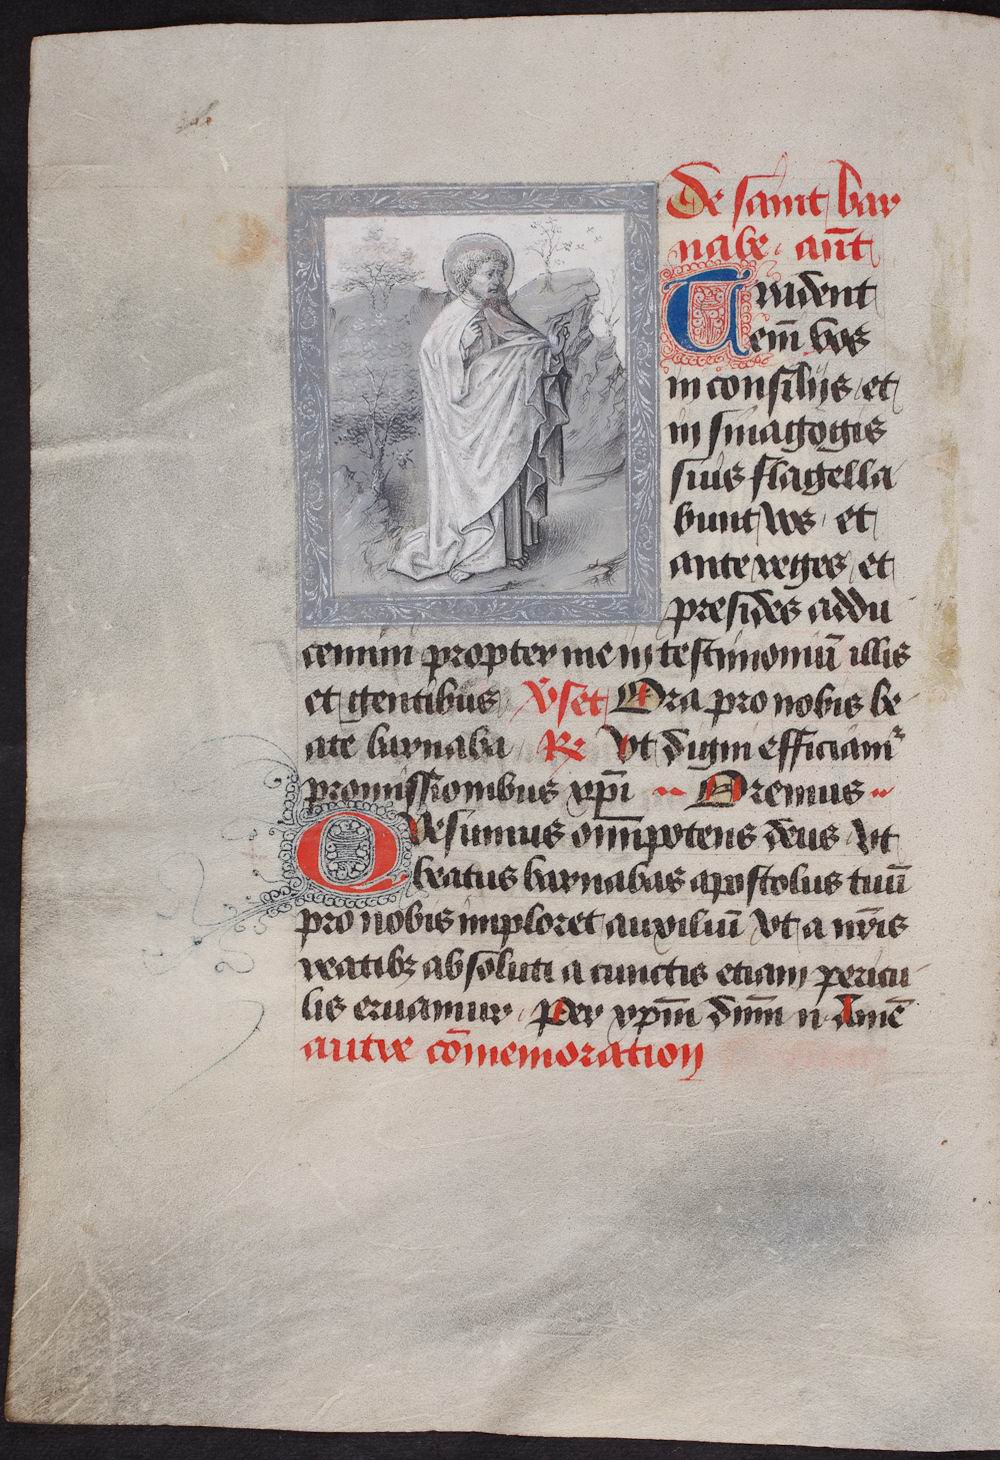 De saint bar
nabe · an̄t
Trident
em̄ vos
in consilijs et
in sinagogis
suis flagella
bunt vos · et
ante reges et
presides addu
cemini propter me in testimoniū illis
et gentibus v̄set Ora pro nobis be
ate barnaba Re Vt digni efficiamʳ
promissionibus xp̄i Oremus
Quesumus om̄ipotens deus Vt
beatus barnabas apostolus tuū
pro nobis imploret auxiliū Vt a nr̄is
reatibꝫ absoluti a cunctis etiam pericu
lis eruamur · Per xp̄m dn̄m n Amē
autre cōmemoration